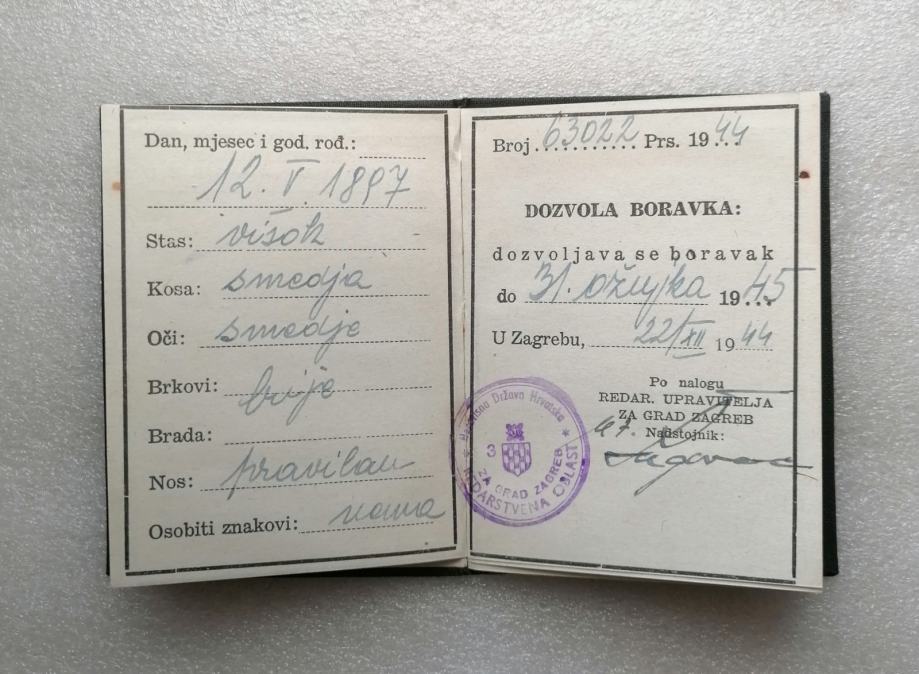 Dan, mjesec i god. rođ.:
12. V. 1897
Stas: visok
Kosa: smedja
Oči: smedje
Brkovi: brije
Brada:
Nos: pravilan
Osobiti znakovi: nema
Broj 63022 Prs. 1944
DOZVOLA BORAVKA:
dozvoljava se boravak
do 31. ožujka 1945
U Zagrebu, 22/XII 1944
Po nalogu
REDAR. UPRAVITELJA
ZA GRAD ZAGREB
Nadstojnik:
Nezavisna Država Hrvatska
3
ZA GRAD ZAGREB
REDARSTVENA OBLAST